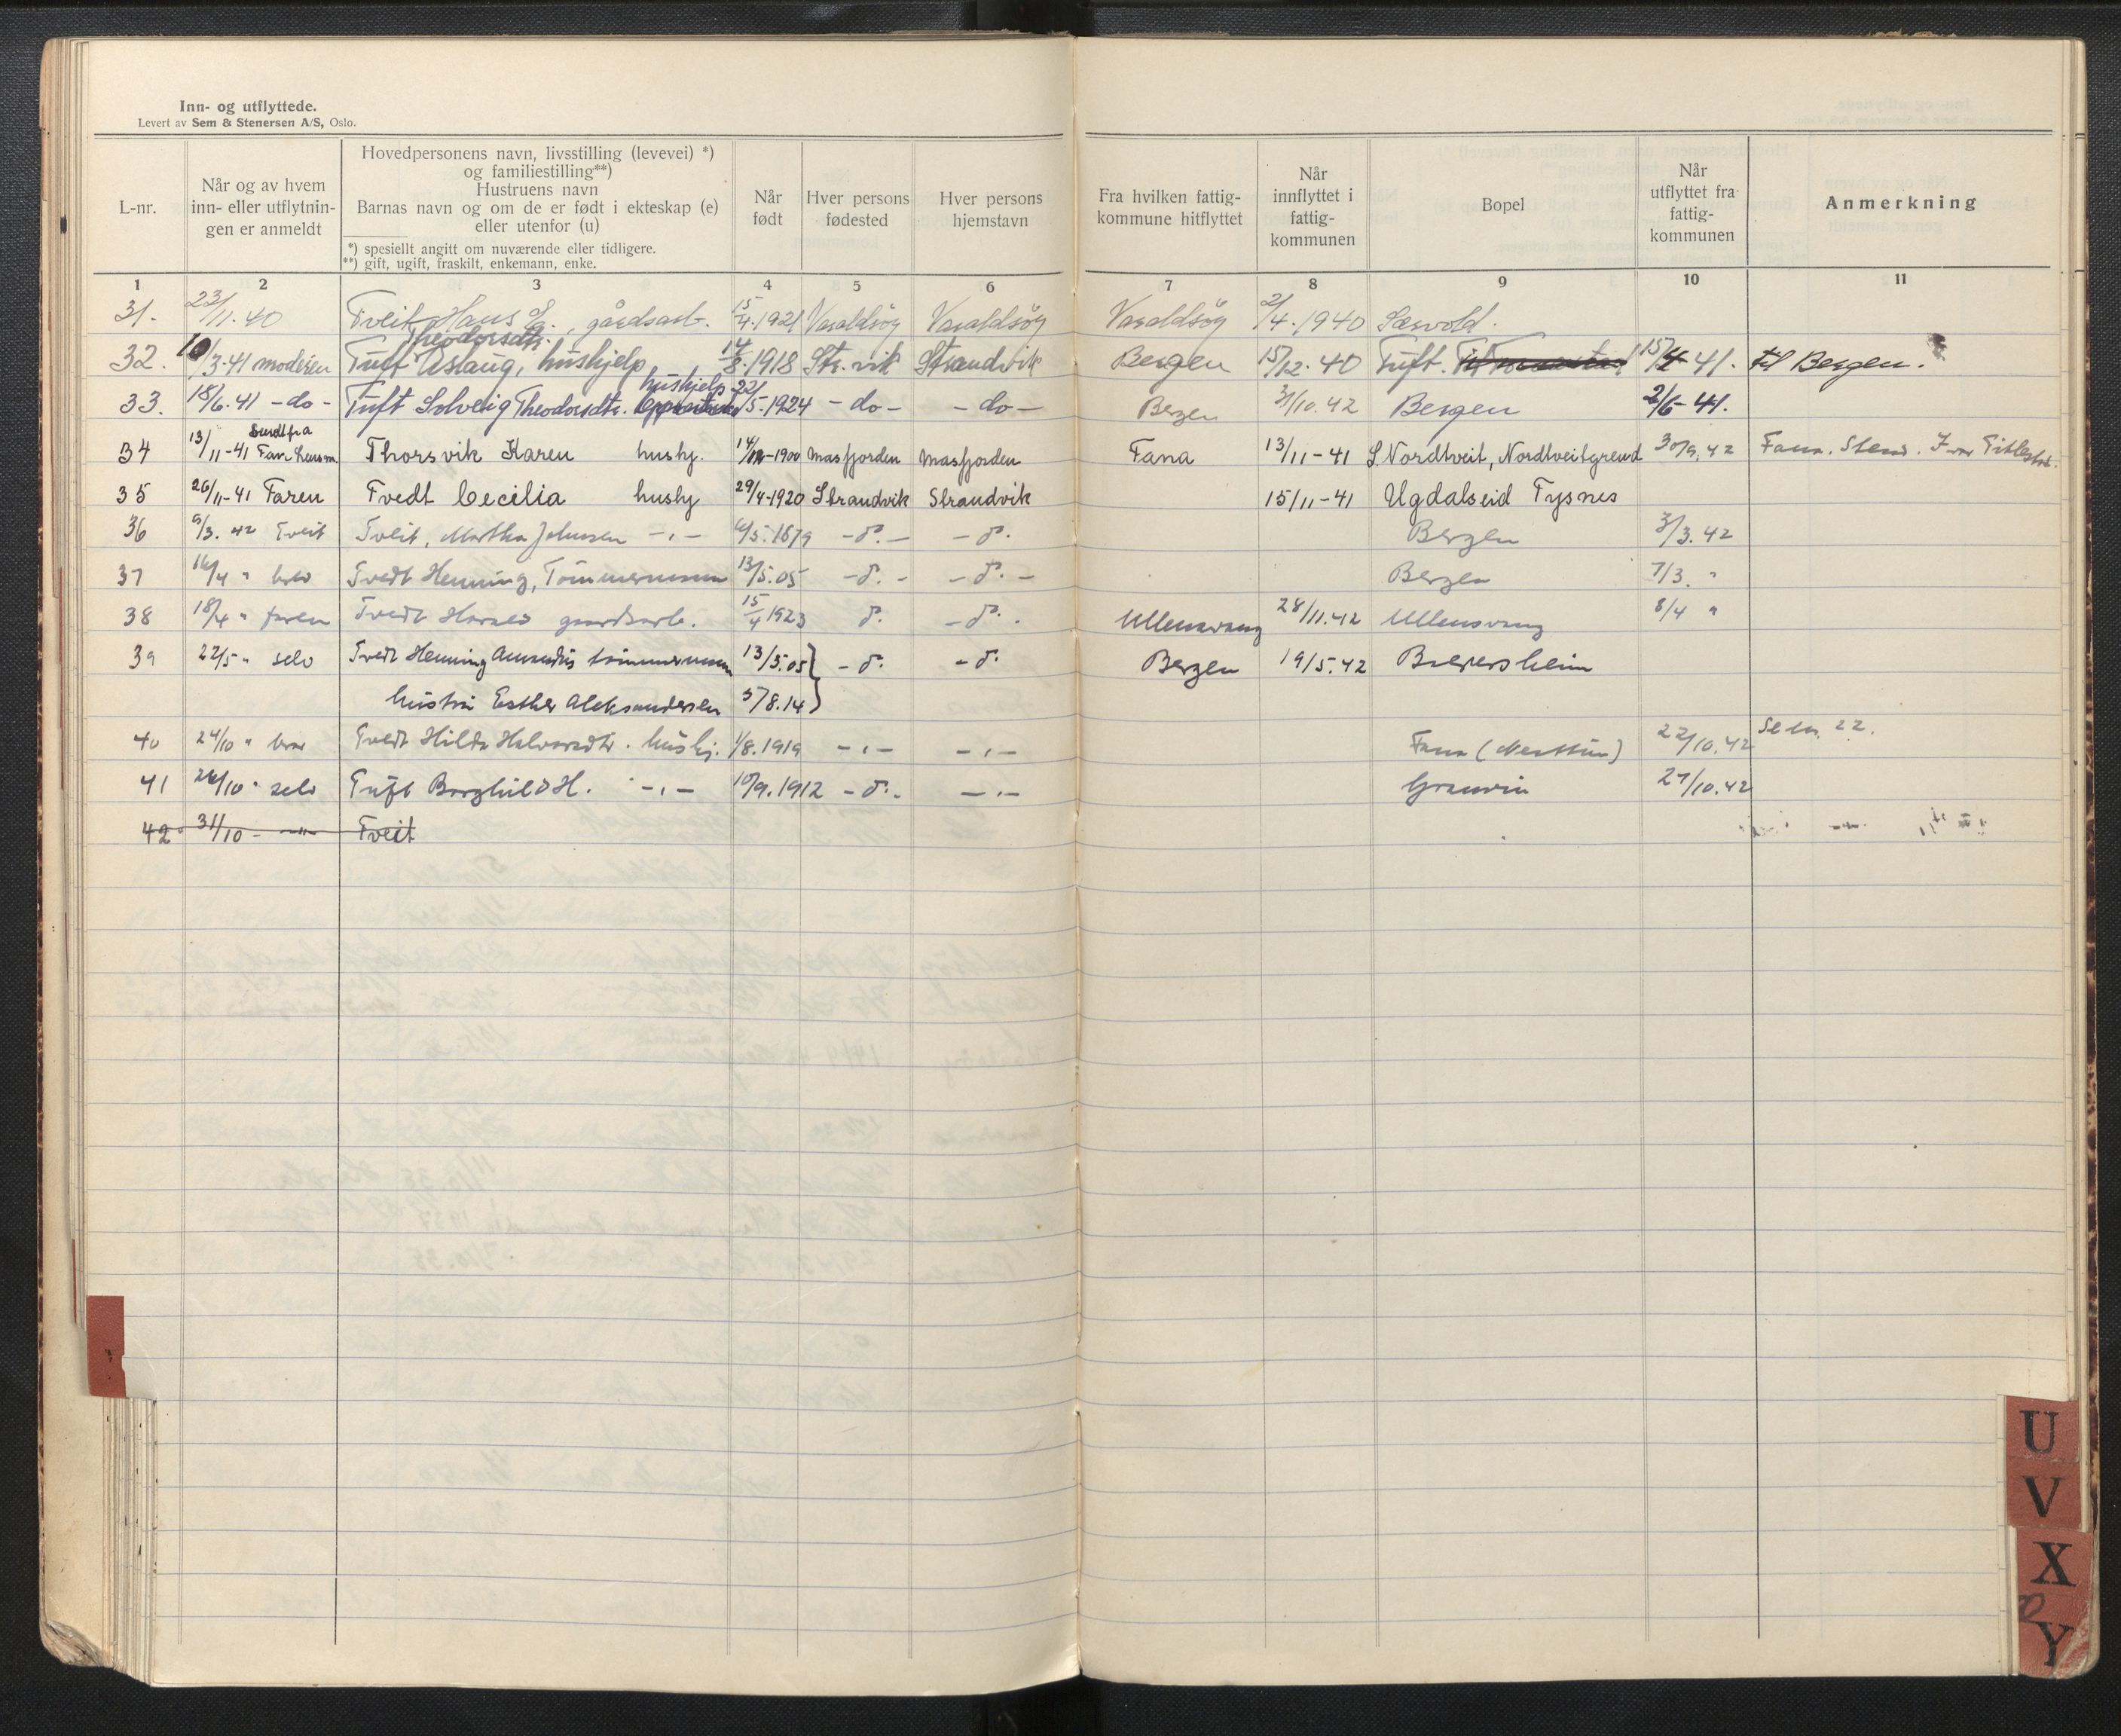 Inn- og utflyttede.
Levert av Sem & Stenersen A/S, Oslo.
L-nr.
Når og av hvem
inn- eller utflytnin-
gen er anmeldt
Hovedpersonens navn, livsstilling (levevei) *)
og familiestilling**)
Hustruens navn
Barnas navn og om de er født i ekteskap (e)
eller utenfor (u)
*) spesiellt angitt om nuværende eller tidligere.
**) gift, ugift, fraskilt, enkemann, enke.
Når
født
Hver persons
fødested
Hver persons
hjemstavn
Fra hvilken fattig-
kommune hitflyttet
Når
innflyttet i
fattig-
kommunen
Bopel
Når
utflyttet fra
fattig-
kommunen
Anmerkning
1 2 3 4 5 6 7 8 9 10 11
31. 23/11.40 Tveit Hans, gårdsarb. 15/4.1921 Varaldsöy Varaldsöy Varaldsöy 2/4.1940 Sævold.
Theodorsdtr.
32. 10/3.41 moderen Tuft Aslaug, hushjelp 14/8.1918 Str.vik Strandvik Bergen 15/12.40 Tuft. 15/4-41. til Bergen.
hushjelp
33. 18/6.41 -do- Tuft Solveig Theodorsdtr. 22/5.1924 -do- -do- Bergen 31/10.42 Bergen 2/6-41.
34 13/11-41 Thorsvik Karen hushj. 14/12-1900 Masfjorden Masfjorden Fana 13/11-41 S. Nordtveit, Nordtveitgrend 30/9.42 Fana. Stend.
35 26/11-41 Faren Tvedt Cecilia hushj 29/4-1920 Strandvik Strandvik 15/11-41 Ugdalseid Tysnes
36 9/3.42 Tveit Tveit, Martha Johnsen -"- 6/5.1879 -d°.- -d°. Bergen 3/3.42
37 16/4 " Tvedt Henning, Tömmermann 13/5.05 -d°.- -d°.- Bergen 7/3. "
38 18/4 " faren Tvedt Harald gaardsarb. 15/4 1923 d°. -d°.. Ullensvang 28/11.42 Ullensvang 8/4 "
39 22/5 " selv Tvedt Henning Amandus tömmermann 13/5.05 -d°. -d°. Bergen 19/5.42
hustru Esther Aleksandersen 5/8.14
40 24/10 " Tvedt Hilda Halvorsdtr. hushj. 1/8.1919 -"- -"- Fana (Nesttun) 22/10.42
41 26/10 " selv Tuft Borghild H. -"- 10/9.1912 -d°.- -"- Granvin 27/10.42
42 31/10 - -"- Tveit
U
V
X
Y